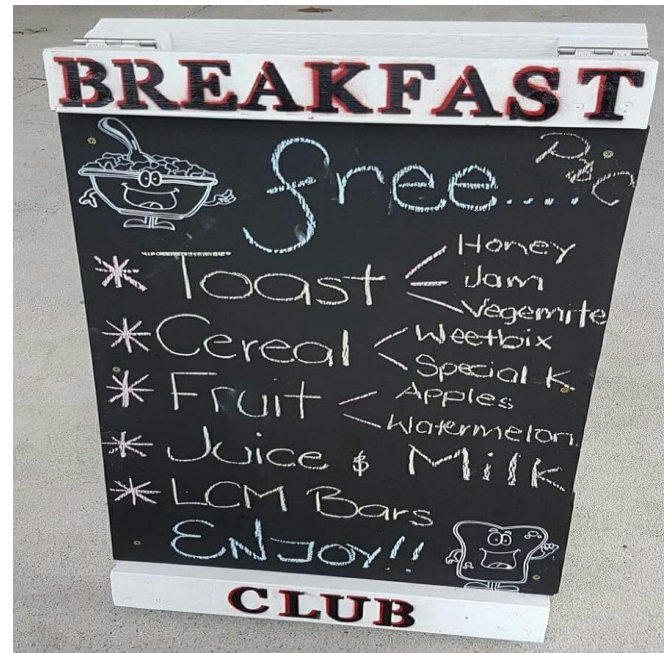 BREAKFAST
P&C
free....
* Toast < Honey
Jam
Vegemite
* Cereal < Weetbix
Special K
* Fruit < Apples
Watermelon
* Juice & Milk
* LCM Bars
ENJOY!!
CLUB